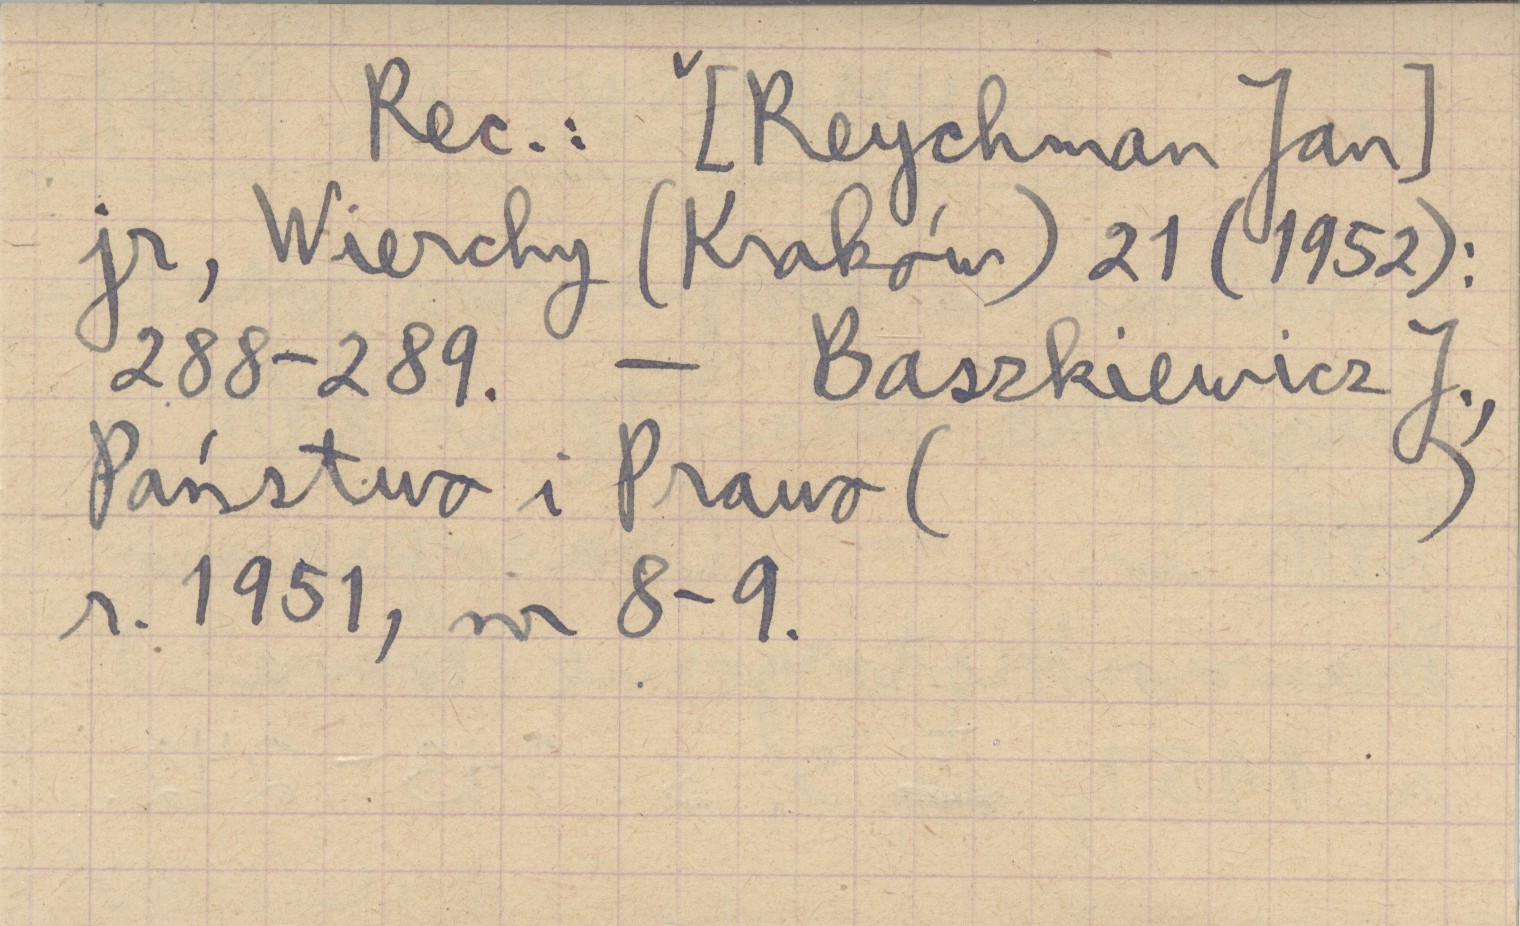 Rec.: ˇ[Reychman Jan]
jr, Wierchy (Kraków) 21 (1952):
288-289. — Baszkiewicz J.,
Państwo i Prawo (          )
r. 1951, nr 8-9.